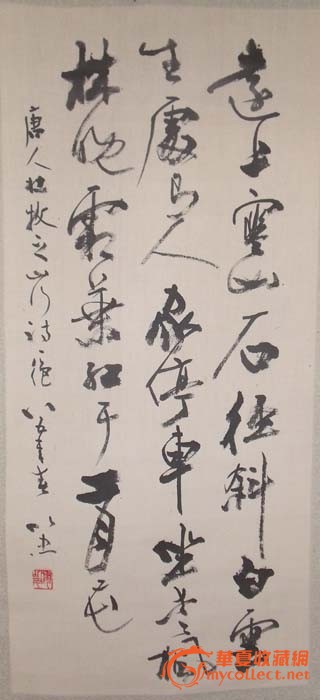 遠上寒山石徑斜白雲
生處有人家停車坐愛楓
林晚霜葉紅于二月花
唐人杜牧之山行詩一絕 八五年春
華夏收藏網
mycollect.net